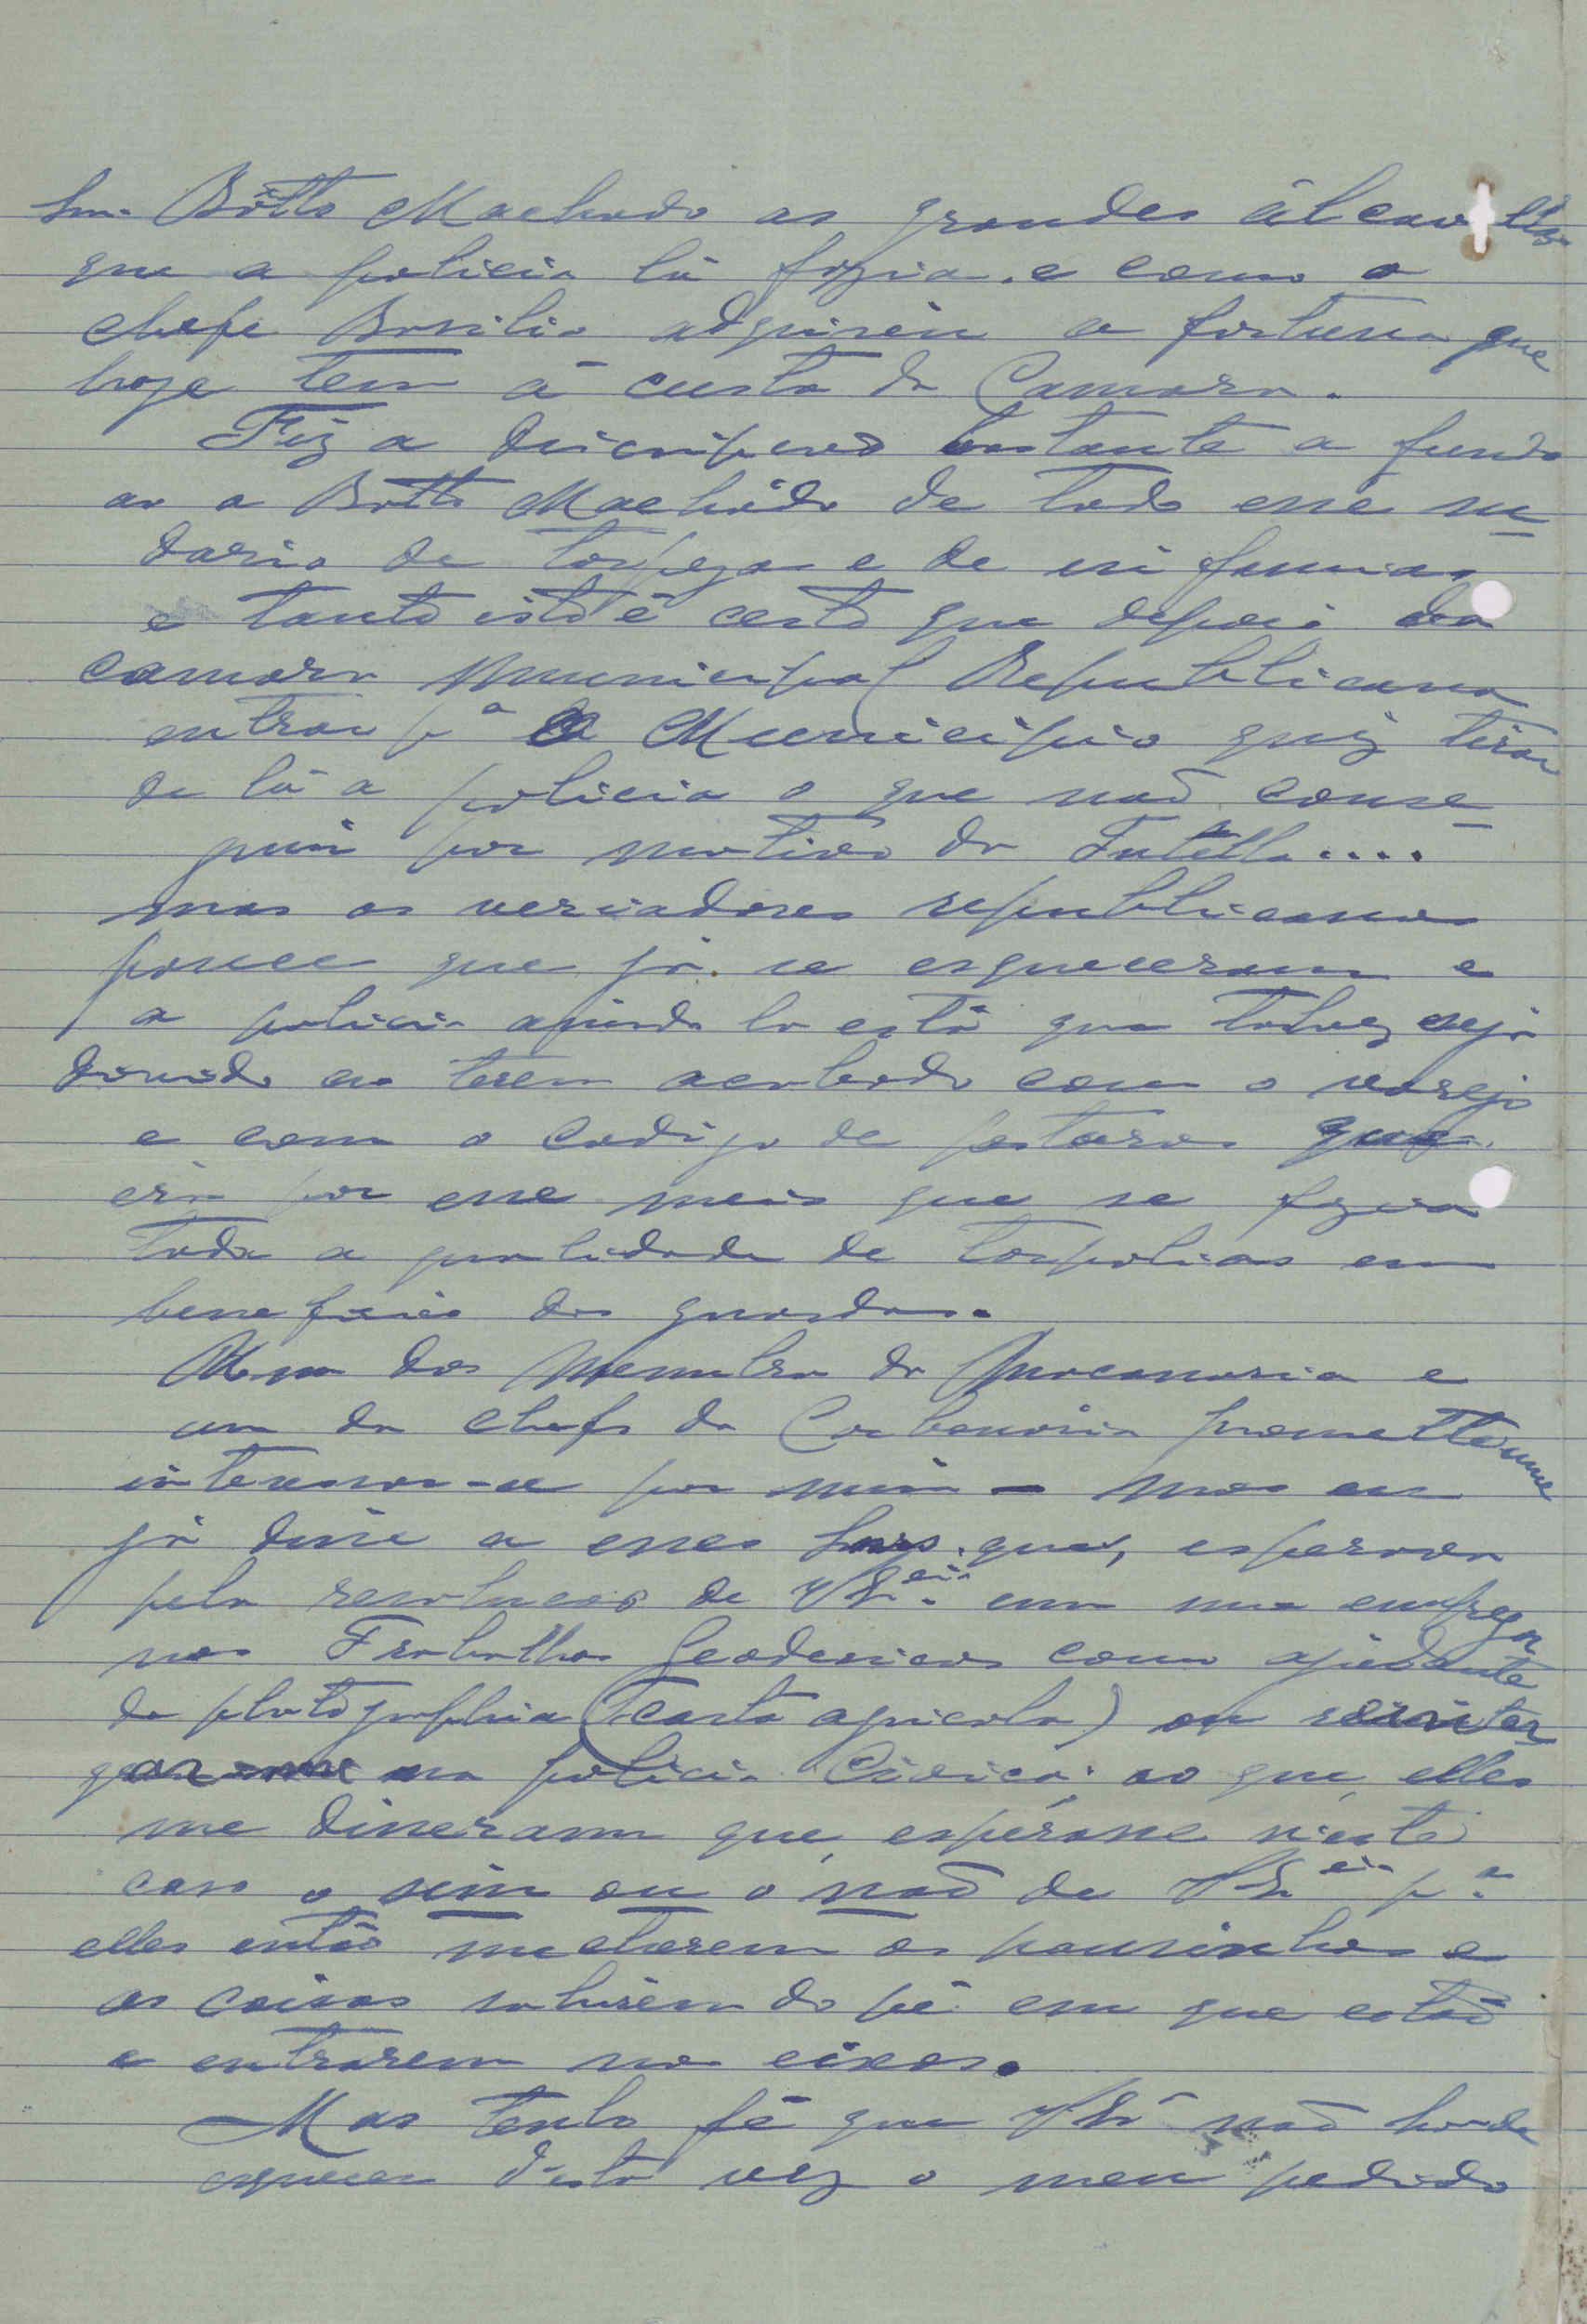 Snr. Bôtto Machado as grandes
que a policia lá fazia. e como o
chefe Basilio adquirio a fortuna que
hoje tem á custa da Camara.
Fiz a discripcaõ bastante a fundo
ao a Botto Machado de todo esse su-
dario de torpezas e de infamias
e tanto isto é certo que depois da
camara Municipal Republicana
entrar pª o Municipio quiz tirar
de lá a policia o que naõ conse-
guiu por motivo da Tutella....
mas os veriadores republicanos
parece que já se esqueceram e
a policia ainda la está que talvez seja
devido ao terem acabado com o varejo
e com o codigo de posturas que
era por esse meio que se fazia
toda a qualidade de em
beneficio dos guardas.
Um dos Membros da Maçonaria e
um da chefs da Carbonaria prometteume
interessar-se por mim - mas eu
já disse a esses Snrs. que, esperava
pela resolucaõ de VExcia. em me empregar
nos Trabalhos Geodesicos como ajudante
de photographia (Carta agricola) ou
na policia Civica: ao que elles
me disseram que esperasse n'este
caso o sim ou o naõ de VExcia pª.
elles entaõ mecherem os pausinhos e
as coisas sahirem do pé em que estaõ
e entrarem nos eixos.
Mas tenho fé que VExª naõ hade
esquecer d'esta vez o meu pedido